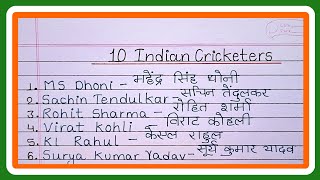 10 Indian Cricketers
1. MS Dhoni - महेंद्र सिंह धोनी
2. Sachin Tendulkar - सचिन तेंदुलकर
3. Rohit Sharma - रोहित शर्मा
4. Virat Kohli - विराट कोहली
5. Kl Rahul - केएल राहुल
6. Surya Kumar Yadav - सूर्य कुमार यादव